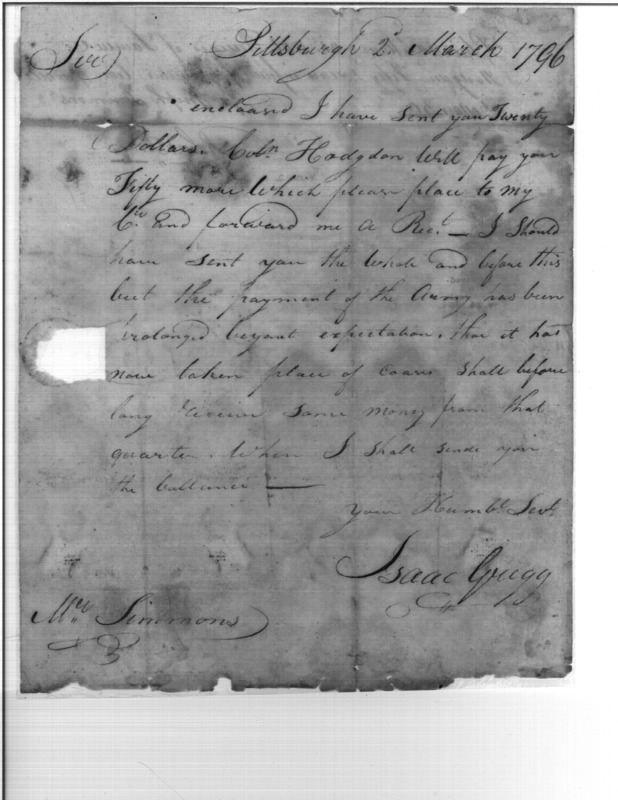 Sir Pittsburgh 2d. March 1796
enclosed I have sent you Twenty
Dollars. Coln. Hodgdon Will pay you
Fifty more Which please place to my
Ct. and forward me a Rect. — I Should
have sent you the Whole and before this
but the payment of the Army has been
prolonged beyant expectation, thar it has
now taken place of coars shall before
long receive some money from that
quarter. When I shall sende you
the ballance —
your Humbl. Servt.
Isaac Gregg
Mr. Simmons